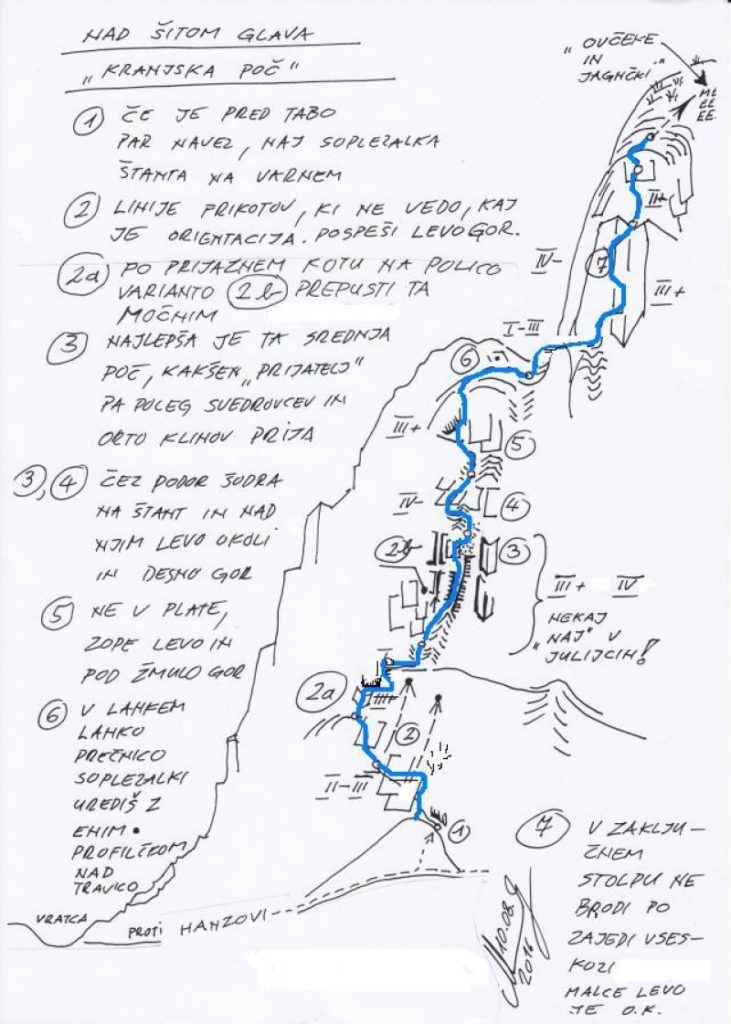 NAD ŠITOM GLAVA
"KRANJSKA POČ"
① ČE JE PRED TABO
PAR NAVEZ, NAJ SOPLEZALKA
ŠTANTA NA VARNEM
② LINIJE PRIKOTOV, KI NE VEDO, KAJ
JE ORIENTACIJA. POSPEŠI LEVO GOR.
②a PO PRIJAZNEM KOTU NA POLICO
VARIANTO ②b PREPUSTI TA
MOČNIM
③ NAJLEPŠA JE TA SREDNJA
POČ, KAKŠEN „PRIJATELJ"
PA POLEG SVEDROVCEV IN
ORTO KLINOV PRIJA
③,④ ČEZ PODOR ŠODRA
NA ŠTANT IN NAD
NJIM LEVO OKOLI
IN DESNO GOR
⑤ NE V PLATE,
ZOPE LEVO IN
POD ŽMULO GOR
⑥ V LAHKEM
LAHKO
PREČNICO
SOPLEZALKI
UREDIŠ Z
ENIM
PROFILČKOM
NAD
TRAVICO
VRATCA
PROTI HANZOVI
„OVČEKE
IN
JAGNČKI"
ME
EE
EE.
II+
IV-
⑦
III+
I-III
⑥
III+
⑤
IV-
④
②b
③
III+ IV
NEKAJ
„NAJ" V
JULIJCIH!
②a
III+
②
II-III
①
⑦ V ZAKLJU-
ČNEM
STOLPU NE
BRODI PO
ZAJEDI VSES-
KOZI
MALCE LEVO
JE O.K.
10.08.
2016